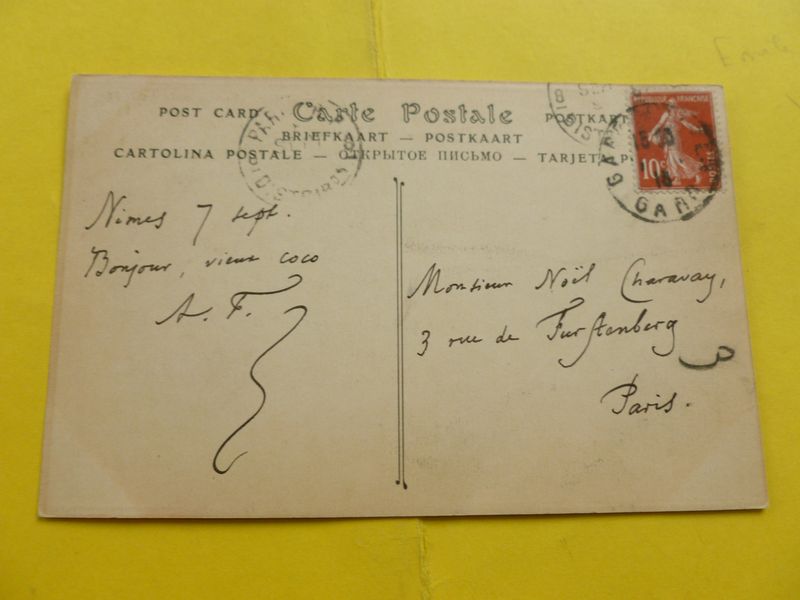 POST CARD Carte Postale POSTKARTE
BRIEFKAART — POSTKAART
CARTOLINA POSTALE — ОТКРЫТОЕ ПИСЬМО — TARJETA
REPUBLIQUE FRANÇAISE
10c
POSTES
GARD
Nimes 7 sept.
Bonjour, vieux coco
A. F.
Monsieur Noël Charavay,
3 rue de Furstenberg
Paris.